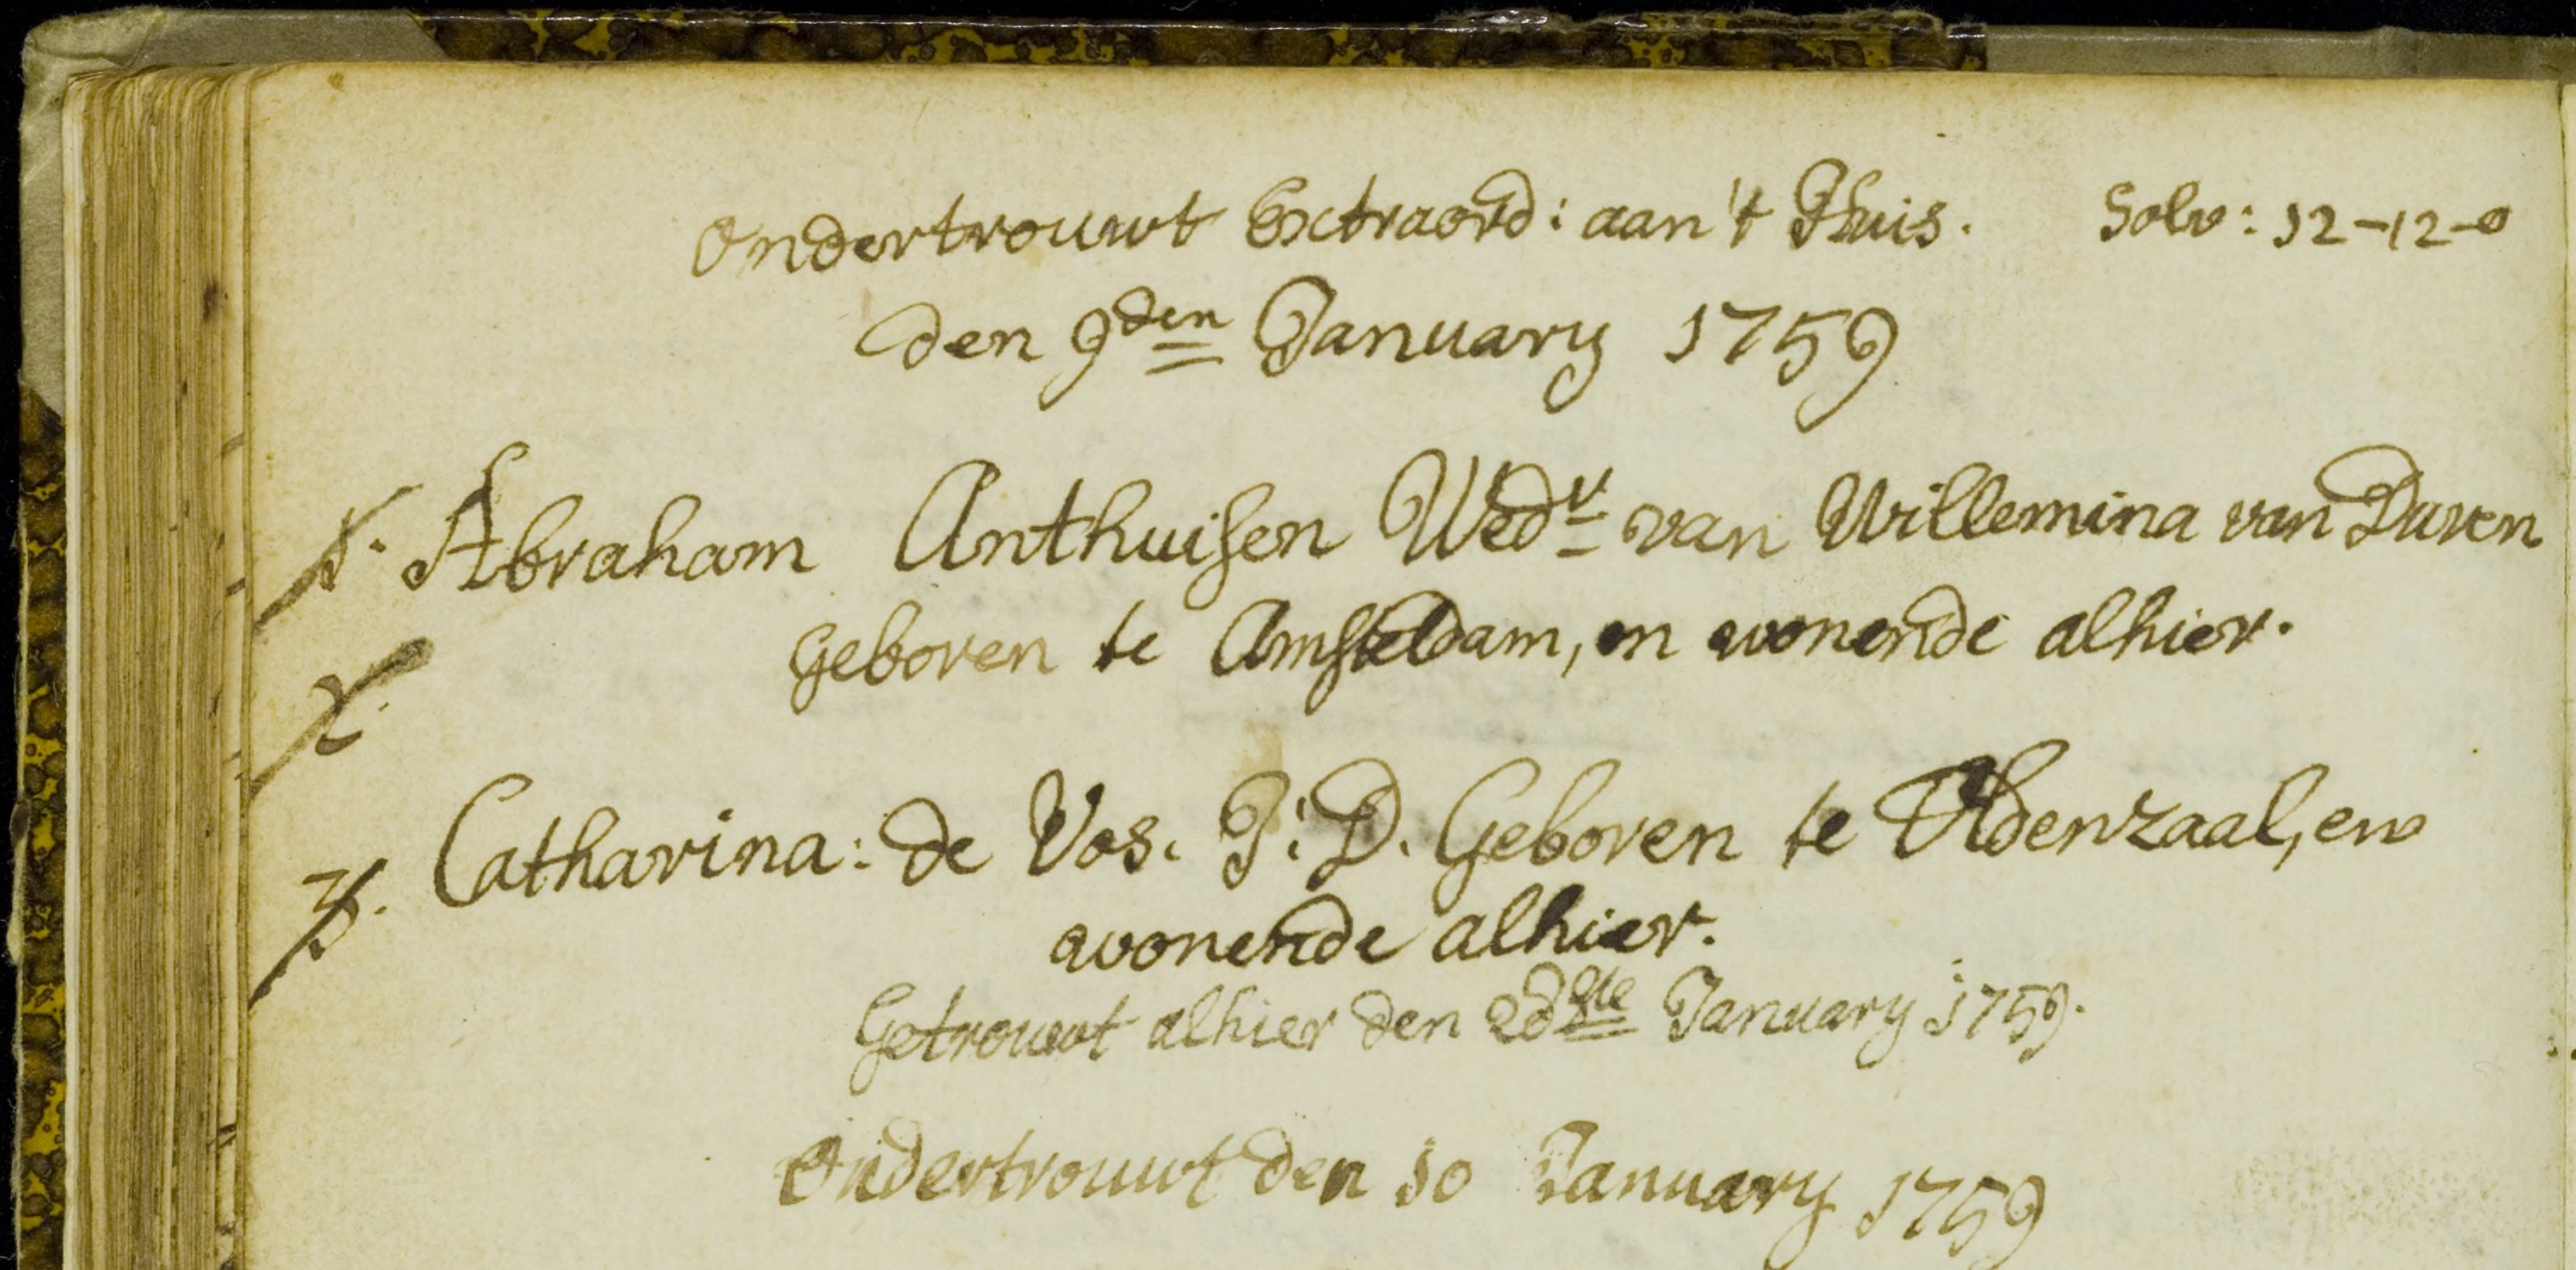 Ondertrouwt Extraord: aan 't Thuis. Solv: 12-12-0
den 9den January 1759
1. Abraham Anthuisen Wedr van Willemina van Duren
Geboren te Amsteldam, en wonende alhier.
2.
3. Catharina: de Vos. J: D. Geboren te Oldenzaal, en
wonende alhier.
Getrouwt alhier den January 1759.
Ondertrouwt den 10 January 1759